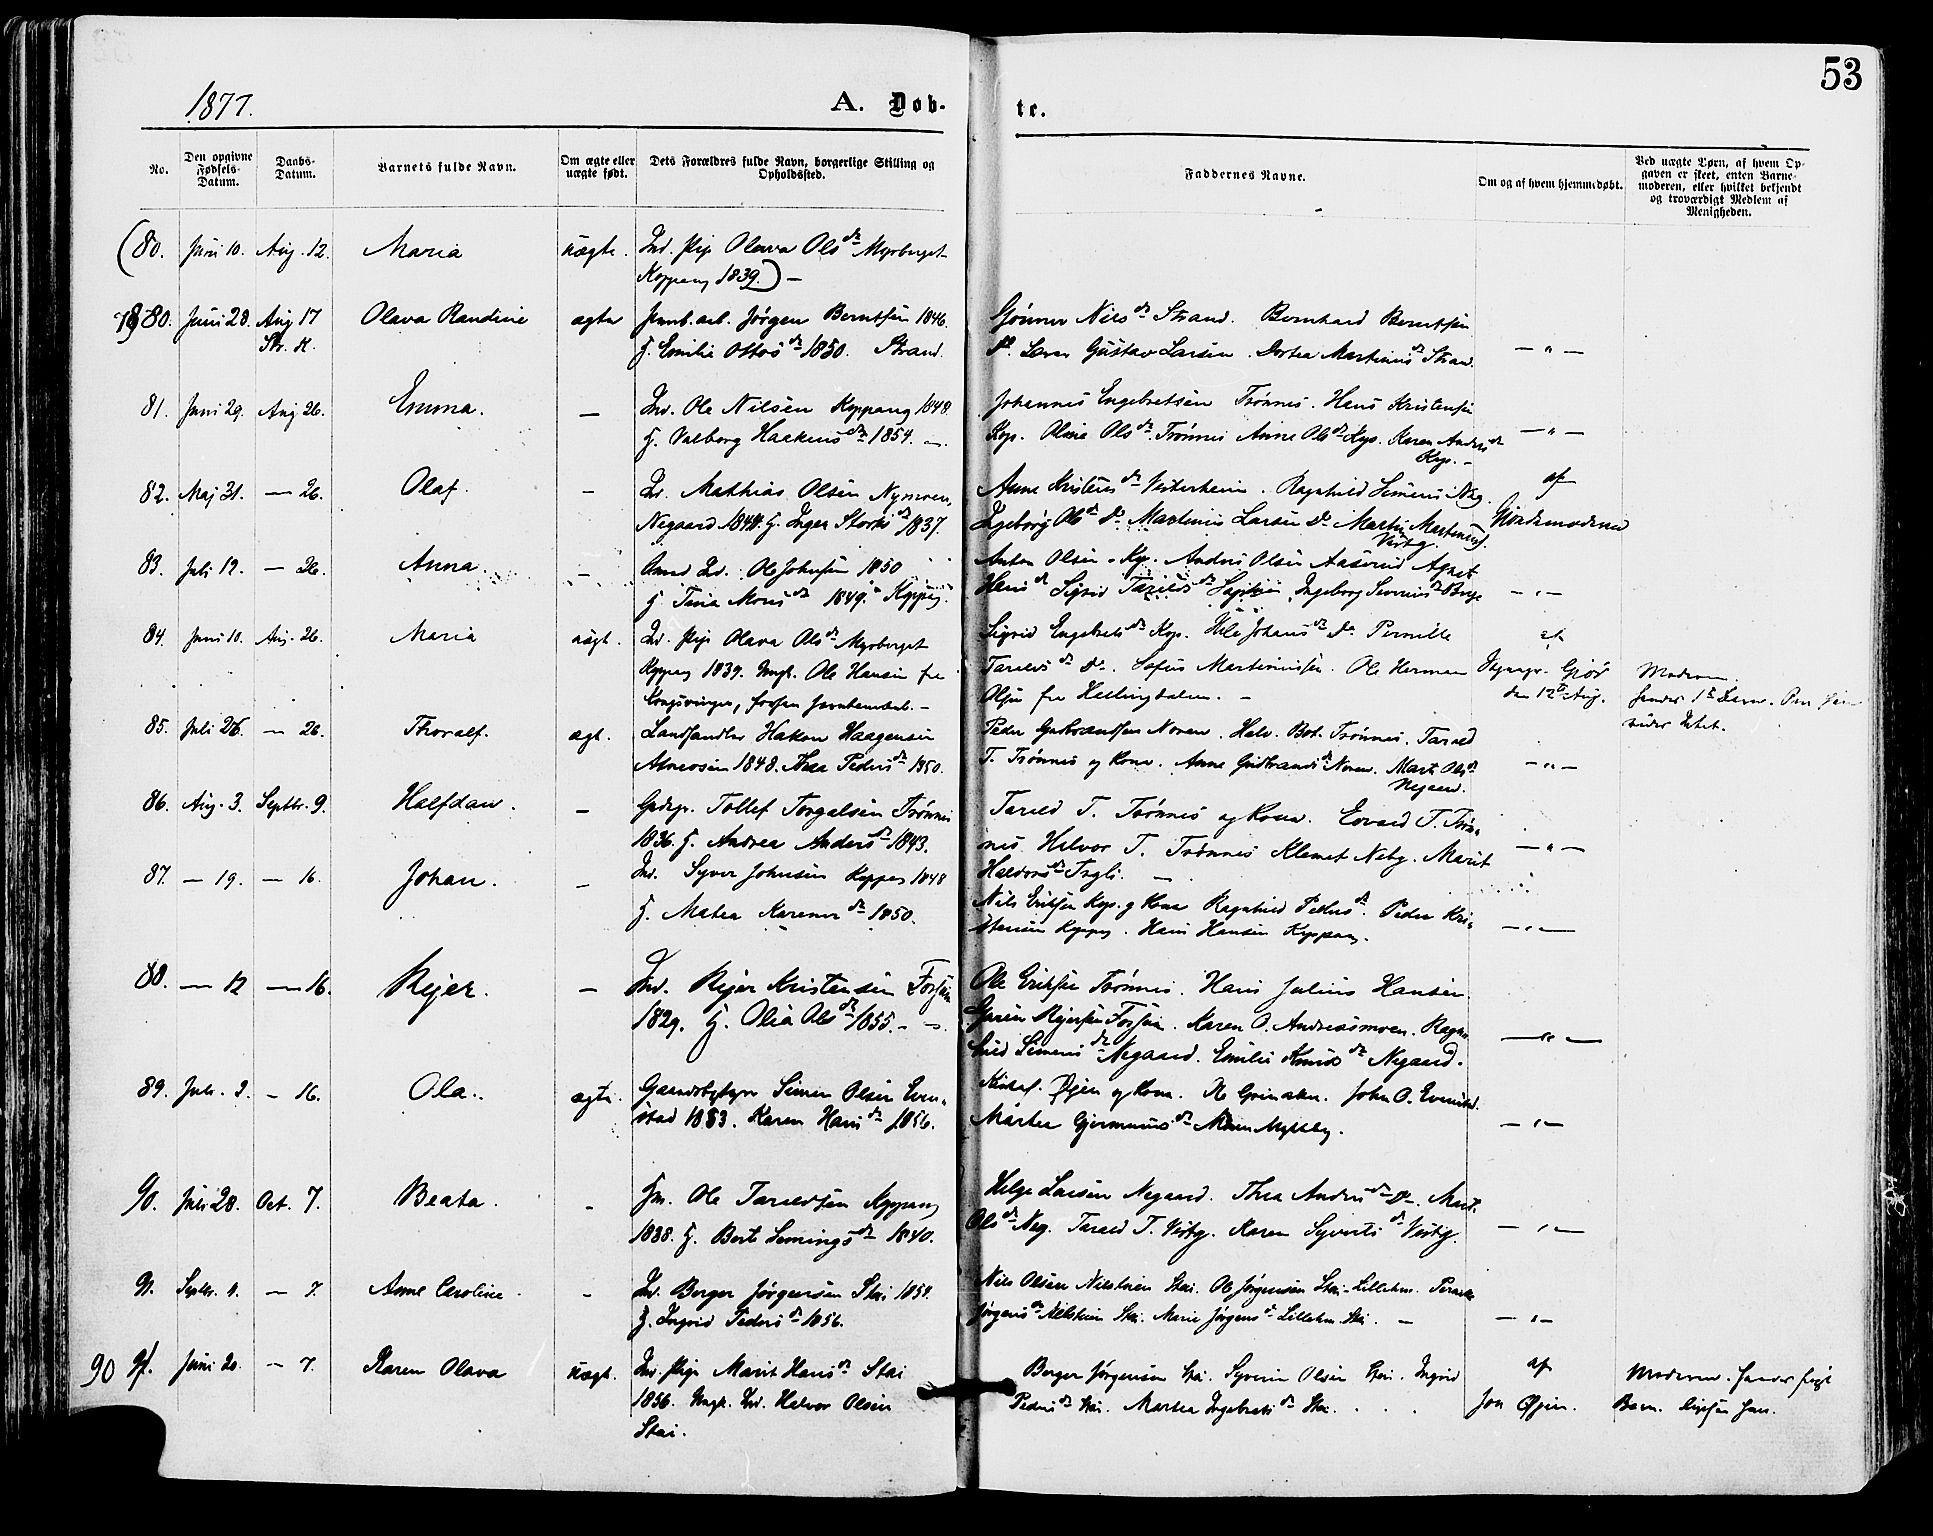 53
1877.
A. Døb-
te.
No.
Den opgivne Fødsels-Datum.
Daabs-Datum.
Barnets fulde Navn.
Om ægte eller uægte født.
Dets Forældres fulde Navn, borgerlige Stilling og Opholdssted.
Faddernes Navne.
Om og af hvem hjemmedøbt.
Ved uægte Børn, af hvem Opgaven er skeet, enten Barnemoderen, eller hvilket bekjendt og troværdigt Medlem af Menigheden.
(80. Juni 10. Aug. 12. Maria uægte. Ind. Pige Olava Olsdr Myrberget
Koppang 1839.) —
80. Juni 28. Aug 17 Olava Randine ægte Jernb. arb. Jørgen Berntsen 1846.
Str. K. H. Emilie Ottosdr 1850. Strand.
Nilsdr Strand. Bernhard Berntsen
Gustav Larsen. Dortea Martinusdr Strand. — " —
81. Juni 29. Aug 26. Emma. — Ind. Ole Nilsen Koppang 1848.
H. Valborg Haakensdr 1854. —
Johannes Engebretsen Trønnes. Hans Kristensen
Kop. Oline Olsdr Trønnes Anne Olsdr Kop. Karen Andersdr — " —
Kop. —
82. Maj 31. — 26. Olaf. — Ind. Mathias Olsen Nymoen,
Negaard 1841. H. Inger Storksdr 1837.
Anne Kristensdr Vesterheim. Ragnhild Simens Neg. af
Ingeborg Olsdr Do Martinus Larsen Do Martin Martinus. Jordemoderen
Vestg.
83. Juli 12. — 26. Anna. — Ind. Ole Johnsen 1850
H. Tina Monsdr 1849. Koppang.
Anton Olsen Kop. Anders Olsen Aaserud Agnet
Hansdr Sigrid Tarildsdr Ingeborg Severinsdr — " —
84. Juni 10. Aug. 26. Maria uægt. Ind. Pige Olava Olsdr Myrberget
Koppang 1839. Ungk. Ole Hansen fra
Kongsvinger, Jernbanearb. —
Sigrid Engebretsdr Kop. Johansdr Do Pernille af
Tarildsdr Do. Martiniussen. Ole Herman
Olsen fra Hallingdalen. — den 12te Aug.
Moderen.
hendes 1ste
85. Juli 26. — 26. Thoralf. ægt. Landhandler Hakon Haagensen
Atneosen 1848. Thea Pedersdr 1850.
Peder Gudbrandsen Noren. Halv. Bot. Trønnes. Tarald
T. Trønnes og Kone. Anne Gudbrandsdr Noren. Marte Olsdr — " —
Negaard.
86. Aug. 3. Septbr. 9. Halfdan. — Gbdgr. Tollef Torgalsen Trønnes
1836. H. Andrea Andersdr 1843.
Tarald T. Trønnes og Kone. Edvard T. Trøn-
nes Halvor T. Trønnes Klemet Nebg. Marit — " —
Haldorsdr Trøgli. —
87. — 19. — 16. Johan. — Ind. Syver Johnsen Koppang 1848
H. Matea Karenusdr 1850.
Nils Eriksen Kop. og Kone Ragnhild Pedersdr. Peder Kri-
stensen Koppang. Hans Hansen Koppang. — " —
88. — 12 — 16. Rejer. — Ind. Rejer Kristensen
1829. H. Olia Olsdr 1855. —
Ole Eriksen Trønnes. Hans Julius Hansen
Rejersen Karen O. Andreasmoen. Ragn-
hild Simensdr Negaard. Emilie Knudsdr Negaard. — " —
89. Juli. 2. — 16. Ola. ægte. Gaardbyger Simen Olsen Even-
stad 1853. Karen Hansdr 1856.
Øgen og Kone. John O. Evenstad.
Martea Gjermunsdr — " —
90. Juli 28. Oct. 7. Beata. — Hm. Ole Taraldsen Koppang
1838. H. Berit Semingsdr 1840.
Helge Larsen Negaard. Thea Andersdr Do. Mart.
Olsdr Neg. Tarald T. Vestg. Karen Syvertsdr Vestg. — " —
91. Septbr. 4. — 7. Anne Caroline. — Ind. Berger Jørgensen Stai 1851.
H. Ingrid Pedersdr 1856.
Nils Olsen Nilsteien Stai. Ole Jørgensen Stai-Lillehm.
Jørgensdr Nilsteien Stai. Marie Jørgensdr Lillehm Stai. — — " —
90 Juni 20. — 7. Karen Olava uægt. Ind. Pige Marit Hansdr Stai
1856. Ungk. Ind. Halvor Olsen
Stai.
Berger Jørgensen Stai. Syverin Olsen Stai. Ingrid af
Pedersdr Stai. Martea Ingebretsdr Stai. Jon Øgen.
Moderen.
Barn.